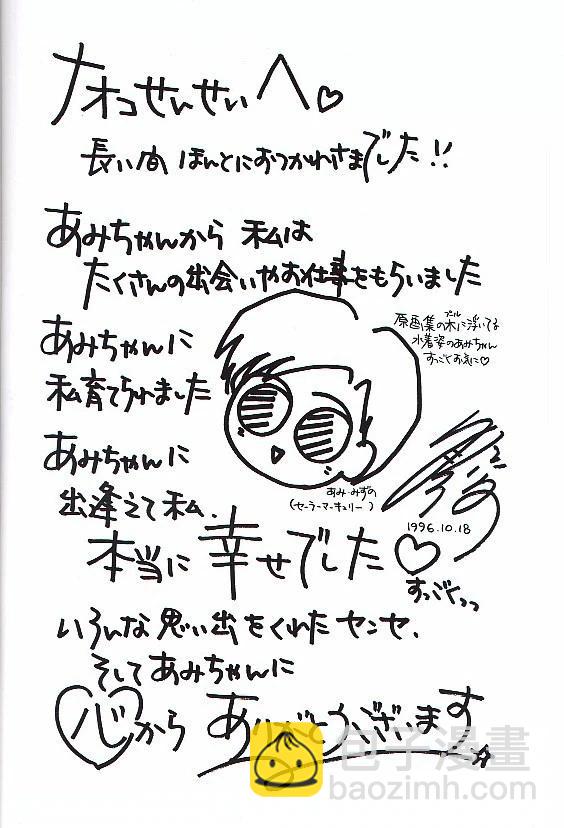 ナオコせんせいへ♡
長い間 ほんとにおつかれさまでした!!
あみちゃんから 私は
たくさんの出会いやお仕事をもらいました
あみちゃんに
私育てられました
あみちゃんに
出逢えて私、
本当に幸せでした♡
すっごくっっ
いろんな思い出をくれたセンセ、
そしてあみちゃんに
心から ありがとうございます
原画集の水に浮いてる
プール
水着姿のあみちゃん
すっごくお気に♡
あみ・みずの
(セーラーマーキュリー)
1996.10.18
包子漫畫
baozimh.com